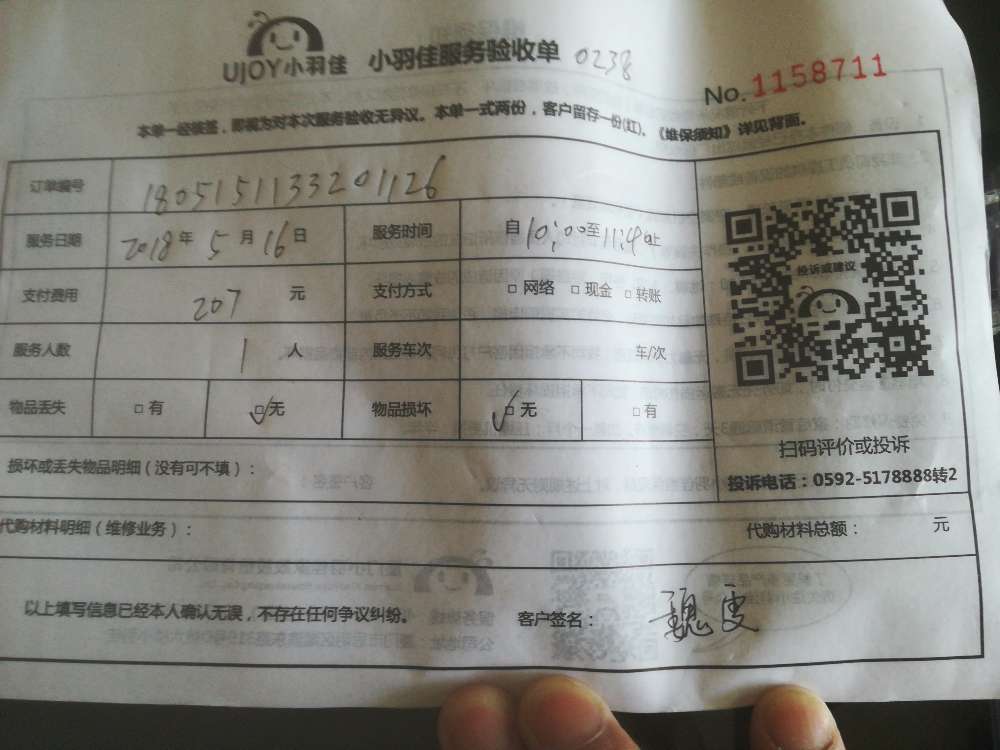 UJOY小羽佳 小羽佳服务验收单 0238
No.1158711
本单一经装签，即视为对本次服务验收无异议。本单一式两份，客户留存一份(红)。《维保须知》详见背面。
订单编号 1805151133201126
服务日期 2018年5月16日 服务时间 自10:00至11:40止
支付费用 207 元 支付方式 □网络 □现金 □转账
服务人数 1 人 服务车次 车/次
物品丢失 □有 ☑无 物品损坏 ☑无 □有
投诉或建议
扫码评价或投诉
投诉电话：0592-5178888转2
损坏或丢失物品明细（没有可不填）：
代购材料明细（维修业务）： 代购材料总额： 元
以上填写信息已经本人确认无误，不存在任何争议纠纷。 客户签名：